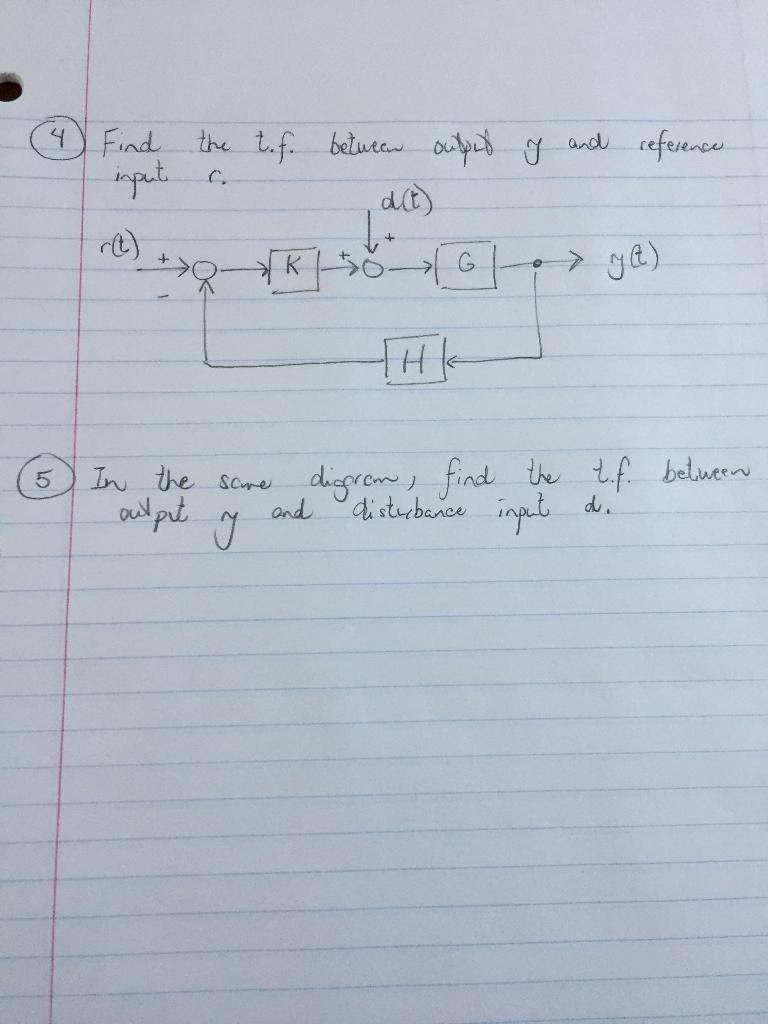 4 Find the t.f. between output y and reference
input r.
d(t)
r(t) + - K + + G y(t)
H
5 In the same diagram, find the t.f. between
output y and disturbance input d.